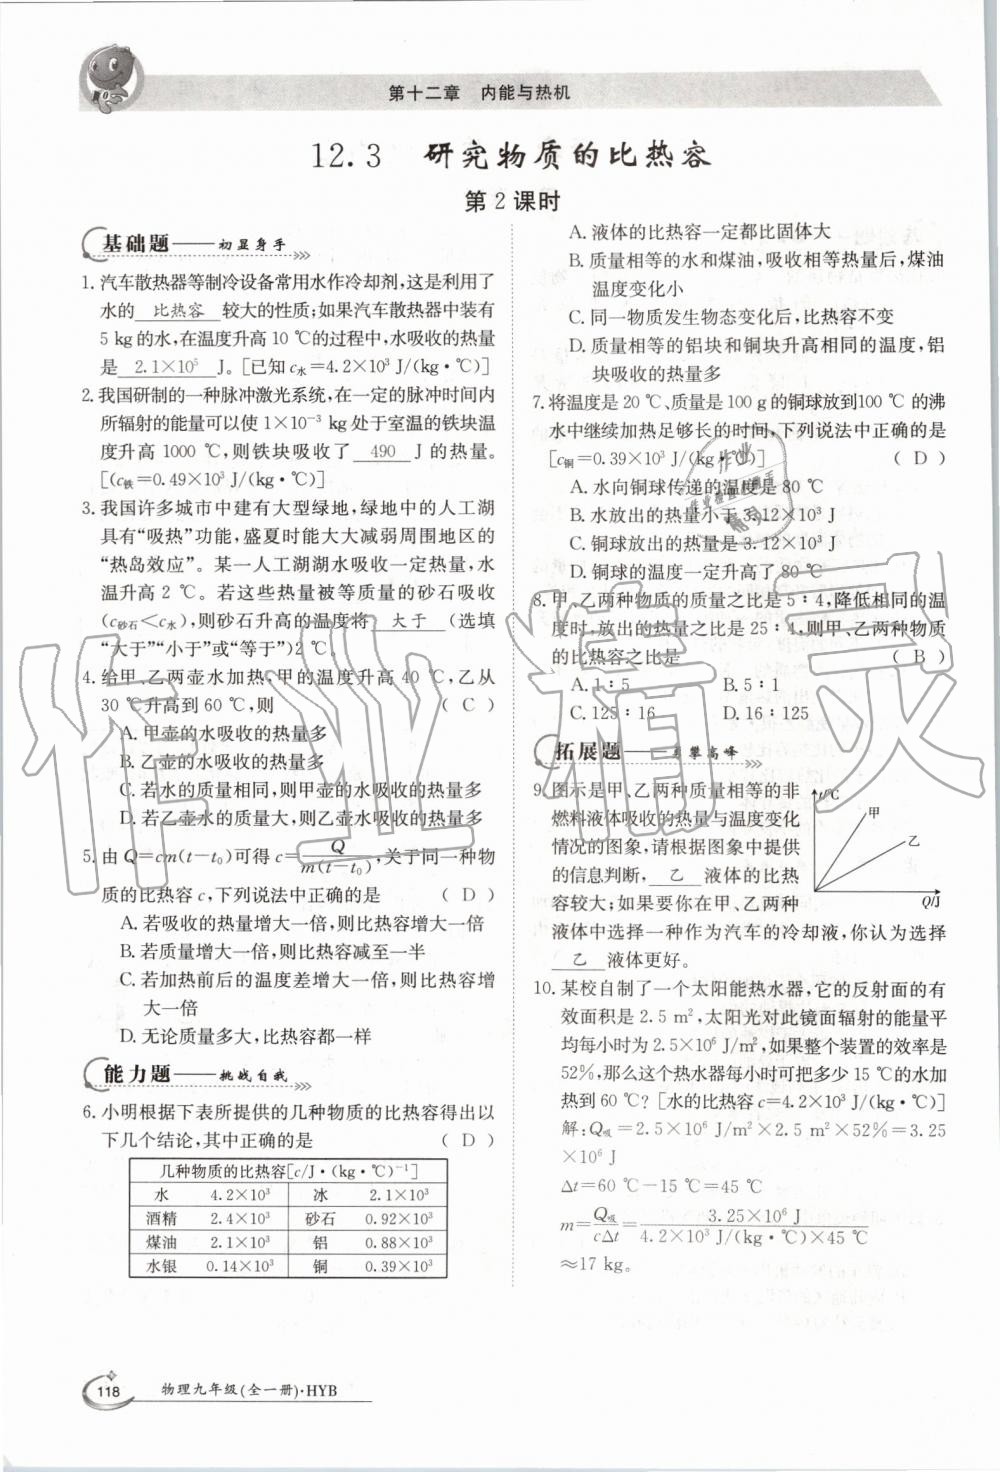 第十二章 内能与热机
12.3 研究物质的比热容
第2课时
基础题——初显身手
1. 汽车散热器等制冷设备常用水作冷却剂,这是利用了
水的 比热容 较大的性质;如果汽车散热器中装有
5 kg的水,在温度升高 10 ℃的过程中,水吸收的热量
是 2.1×10⁵ J。[已知 c水=4.2×10³ J/(kg·℃)]
2. 我国研制的一种脉冲激光系统,在一定的脉冲时间内
所辐射的能量可以使 1×10⁻³ kg处于室温的铁块温
度升高 1000 ℃,则铁块吸收了 490 J 的热量。
[(c铁=0.49×10³ J/(kg·℃)]
3. 我国许多城市中建有大型绿地,绿地中的人工湖
具有“吸热”功能,盛夏时能大大减弱周围地区的
“热岛效应”。某一人工湖湖水吸收一定热量,水
温升高 2 ℃。若这些热量被等质量的砂石吸收
(c砂石<c水),则砂石升高的温度将 大于 (选填
“大于”“小于”或“等于”)2 ℃。
4. 给甲、乙两壶水加热,甲的温度升高 40 ℃,乙从
30 ℃升高到 60 ℃,则 ( C )
A. 甲壶的水吸收的热量多
B. 乙壶的水吸收的热量多
C. 若水的质量相同,则甲壶的水吸收的热量多
D. 若乙壶水的质量大,则乙壶水吸收的热量多
5. 由 Q=cm(t−t₀)可得 c=Q/m(t−t₀),关于同一种物
质的比热容 c,下列说法中正确的是 ( D )
A. 若吸收的热量增大一倍,则比热容增大一倍
B. 若质量增大一倍,则比热容减至一半
C. 若加热前后的温度差增大一倍,则比热容增
大一倍
D. 无论质量多大,比热容都一样
能力题——挑战自我
6. 小明根据下表所提供的几种物质的比热容得出以
下几个结论,其中正确的是 ( D )
几种物质的比热容[c/J·(kg·℃)⁻¹]
水 4.2×10³ 冰 2.1×10³
酒精 2.4×10³ 砂石 0.92×10³
煤油 2.1×10³ 铝 0.88×10³
水银 0.14×10³ 铜 0.39×10³
A. 液体的比热容一定都比固体大
B. 质量相等的水和煤油,吸收相等热量后,煤油
温度变化小
C. 同一物质发生物态变化后,比热容不变
D. 质量相等的铝块和铜块升高相同的温度,铝
块吸收的热量多
7. 将温度是 20 ℃、质量是 100 g的铜球放到100 ℃ 的沸
水中继续加热足够长的时间,下列说法中正确的是
[c铜=0.39×10³ J/(kg·℃)] ( D )
A. 水向铜球传递的温度是 80 ℃
B. 水放出的热量小于 3.12×10³ J
C. 铜球放出的热量是 3.12×10³ J
D. 铜球的温度一定升高了 80 ℃
8. 甲、乙两种物质的质量之比是 5∶4,降低相同的温
度时,放出的热量之比是 25∶4,则甲、乙两种物质
的比热容之比是 ( B )
A. 1∶5 B. 5∶1
C. 125∶16 D. 16∶125
拓展题——勇攀高峰
9. 图示是甲、乙两种质量相等的非
燃料液体吸收的热量与温度变化
情况的图象,请根据图象中提供
的信息判断, 乙 液体的比热
容较大;如果要你在甲、乙两种
液体中选择一种作为汽车的冷却液,你认为选择
乙 液体更好。
t/℃
甲
乙
Q/J
10. 某校自制了一个太阳能热水器,它的反射面的有
效面积是 2.5 m²,太阳光对此镜面辐射的能量平
均每小时为 2.5×10⁶ J/m²,如果整个装置的效率是
52%,那么这个热水器每小时可把多少 15 ℃的水加
热到 60 ℃?[水的比热容 c=4.2×10³ J/(kg·℃)]
解:Q吸=2.5×10⁶ J/m²×2.5 m²×52%=3.25
×10⁶ J
Δt=60 ℃−15 ℃=45 ℃
m=Q吸/cΔt=3.25×10⁶ J/4.2×10³ J/(kg·℃)×45 ℃
≈17 kg。
118 物理九年级(全一册)·HYB
作业精灵